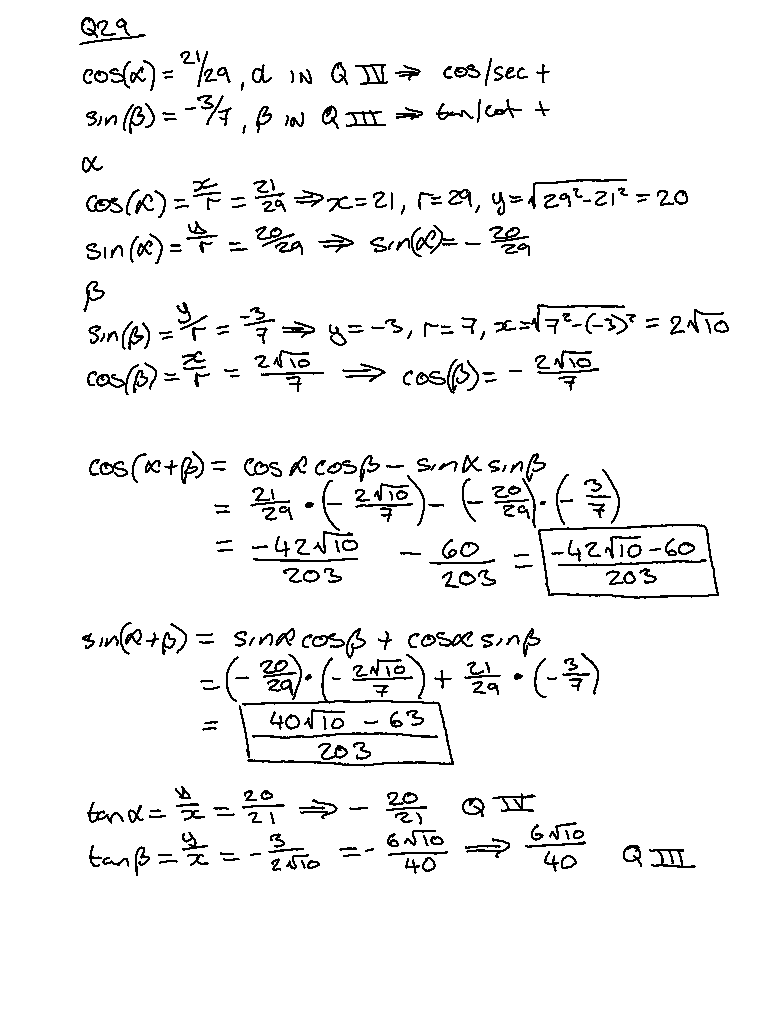 Q29
cos(α) = 21/29, α IN Q IV ⇒ cos/sec +
sin(β) = -3/7, β IN Q III ⇒ tan/cot +
α
cos(α) = x/r = 21/29 ⇒ x = 21, r = 29, y = √(29²-21²) = 20
sin(α) = y/r = 20/29 ⇒ sin(α) = - 20/29
β
sin(β) = y/r = -3/7 ⇒ y = -3, r = 7, x = √(7²-(-3)²) = 2√10
cos(β) = x/r = 2√10/7 ⇒ cos(β) = - 2√10/7
cos(α+β) = cosα cosβ - sinα sinβ
= 21/29 · (- 2√10/7) - (- 20/29) · (- 3/7)
= -42√10/203 - 60/203 = (-42√10-60)/203
sin(α+β) = sinα cosβ + cosα sinβ
= (- 20/29) · (- 2√10/7) + 21/29 · (- 3/7)
= (40√10 - 63)/203
tanα = y/x = 20/21 ⇒ - 20/21 Q IV
tanβ = y/x = - 3/2√10 = - 6√10/40 ⇒ 6√10/40 Q III